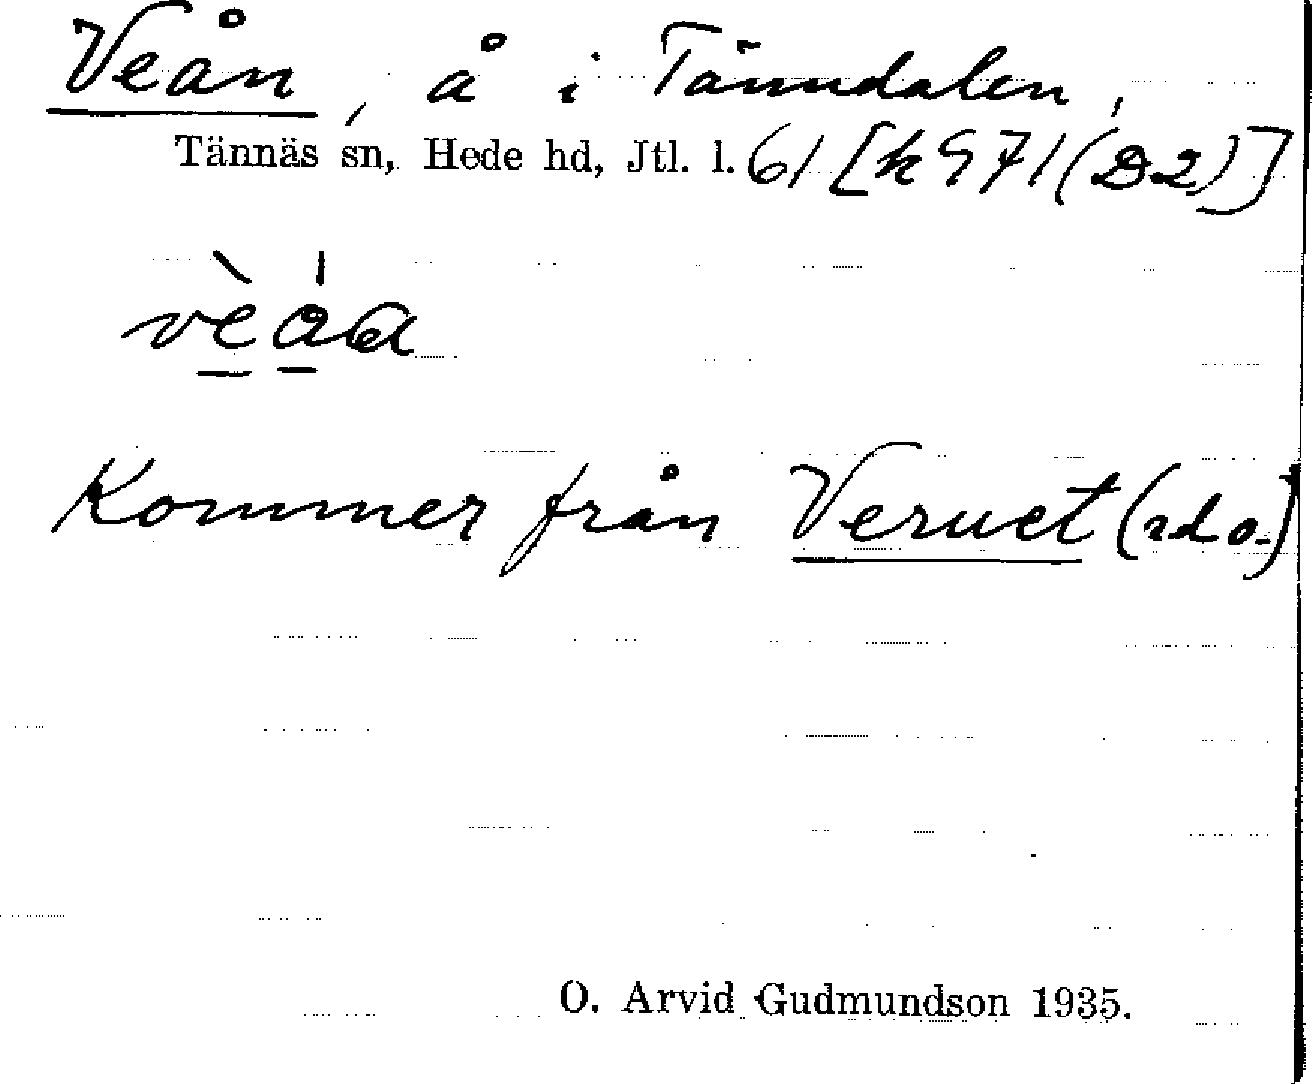 Veån, å i Tänndalen,
Tännäs sn, Hede hd, Jtl. l. 61 [k 971 (D2)]
Kommer från Veruet (s d o.)
O. Arvid Gudmundson 1935.